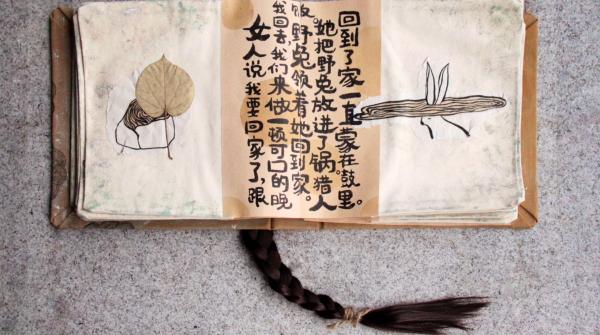 女人说我要回家了,跟
我回去,我们来做一顿可口的晚
饭。野兔领着她回到家。
她把野兔放进了锅。猎人
回到了家一直蒙在鼓里。